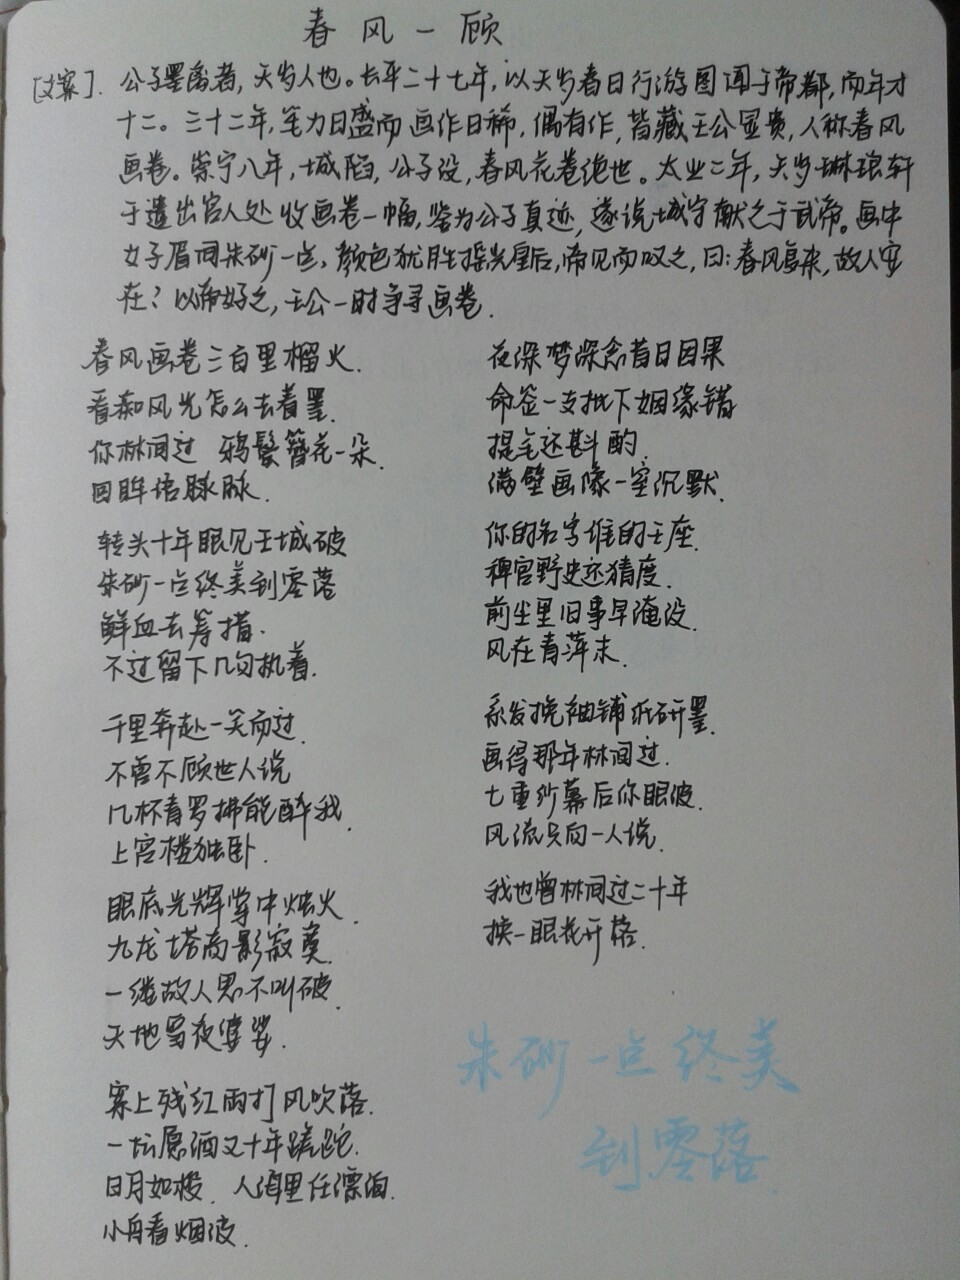 春风一顾
[文案]. 公子墨离者,天岁人也。长平二十七年,以天岁春日行游图闻于帝都,而年才
十二。三十二年,笔力日盛而画作日稀,偶有作,皆藏王公显贵,人称春风
画卷。崇宁八年,城陷,公子没,春风花卷绝世。太业二年,天岁琳琅轩
于遗出宫人处收画卷一幅,鉴为公子真迹,遂说城守献之于武帝。画中
女子眉间朱砂一点,颜色犹胜摇光皇后,帝见而叹之,曰:春风复来,故人安
在?以帝好之,王公一时争寻画卷.
春风画卷三百里榴火.
看痴风光怎么去着墨.
你林间过 鸦鬓簪花一朵.
回眸语脉脉.
转头十年眼见王城破
朱砂一点终美到零落
鲜血去筹措.
不过留下几句执着.
千里奔赴一笑而过.
不曾不顾世人说
几杯青罗拂能醉我.
上宫楼独卧.
眼底光辉掌中烛火.
九龙塔高影寂寞.
一缕故人思不叫破.
天地雪夜婆娑.
案上残红雨打风吹落.
一坛愿酒又十年蹉跎.
日月如梭. 人海里任漂泊.
小舟看烟波.
花深梦深念昔日因果
命签一支批下姻缘错
提笔还斟酌.
满壁画像一室沉默.
你的名字谁的王座.
稗官野史还猜度.
前尘里旧事早淹没.
风在青萍末.
系发挽袖铺纸研墨.
画得那年林间过.
七重纱幕后你眼波.
风流只向一人说.
我也曾林间过二十年
换一眼花开落.
朱砂一点终美
到零落.